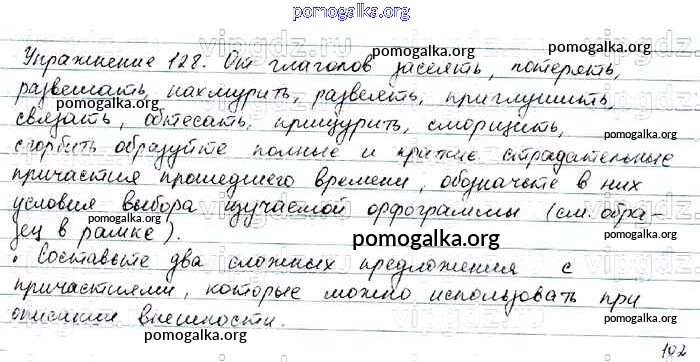 pomogalka.org
Упражнение 128. От глаголов засеять, потерять,
развешать, нахмурить, развеять, приглушить,
связать, обтесать, прищурить, сморщить,
сгорбить образуйте полные и краткие страдательные
причастия прошедшего времени, обозначьте в них
условия выбора изучаемой орфограммы (см. обра-
зец в рамке).
• Составьте два сложных предложения с
причастиями, которые можно использовать при
описании внешности.
102
pomogalka.org
pomogalka.org
pomogalka.org
pomogalka.org
pomogalka.org
pomogalka.org
pomogalka.org
pomogalka.org
pomogalka.org